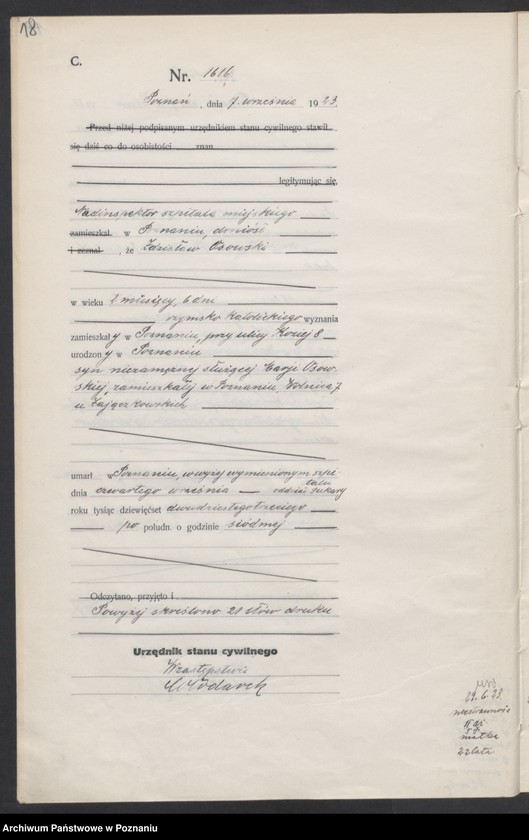 18
C.
Nr. 1616
Poznań, dnia 7 września 1923.
Przed niżej podpisanym urzędnikiem stanu cywilnego stawił
się dziś co do osobistości znan
legitymując się,
Nadinspektor szpitala miejskiego
zamieszkał w Poznaniu, doniósł
i zeznał, że Zdzisław Osowski
w wieku 2 miesięcy, 6 dni
rzymsko katolickiego wyznania
zamieszkały w Poznaniu, przy ulicy Koziej 8
urodzony w Poznaniu
syn niezamężnej służącej Osow-
skiej, zamieszkałej w Poznaniu, 7
u Zajączkowskich
umarł w Poznaniu, w wyżej wymienionym szpi-
talu
dnia czwartego września oddział
roku tysiąc dziewięćset dwudziestego trzeciego
po połudn. o godzinie siódmej
Odczytano, przyjęto i
Powyżej skreślono 21 słów druku
Urzędnik stanu cywilnego
W zastępstwie
Włodarek
29.6.23.
matka
22 lata
Archiwum Państwowe w Poznaniu